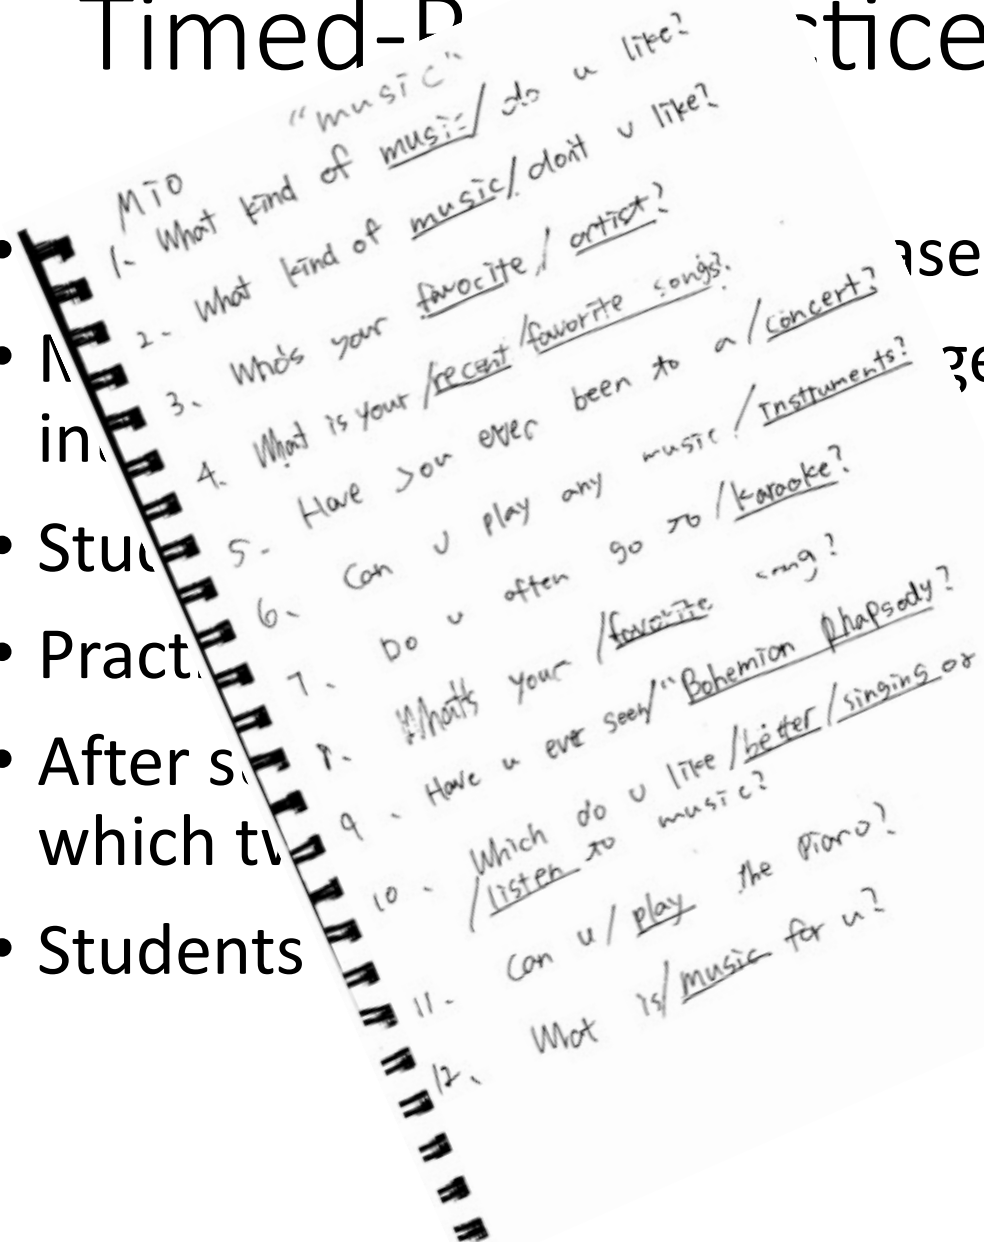 Timed-P
tice
"music"
MIO
1. What kind of music / do u like?
2. What kind of music / don't u like?
3. Who's your favocite / artist?
4. What is your / recent / favorite songs?
5. Have you ever been to a / concert?
6. Can u play any music / instruments?
7. Do u often go to / karaoke?
8. What's your / favorite song?
9. Have u ever seen / "Bohemian Rhapsody?
10. Which do u like / better / singing or
/ listen to music?
11. Can u / play the piano?
12. What is / music for u?
ase
ge
in
Stud
Pract
After s
which tw
Students